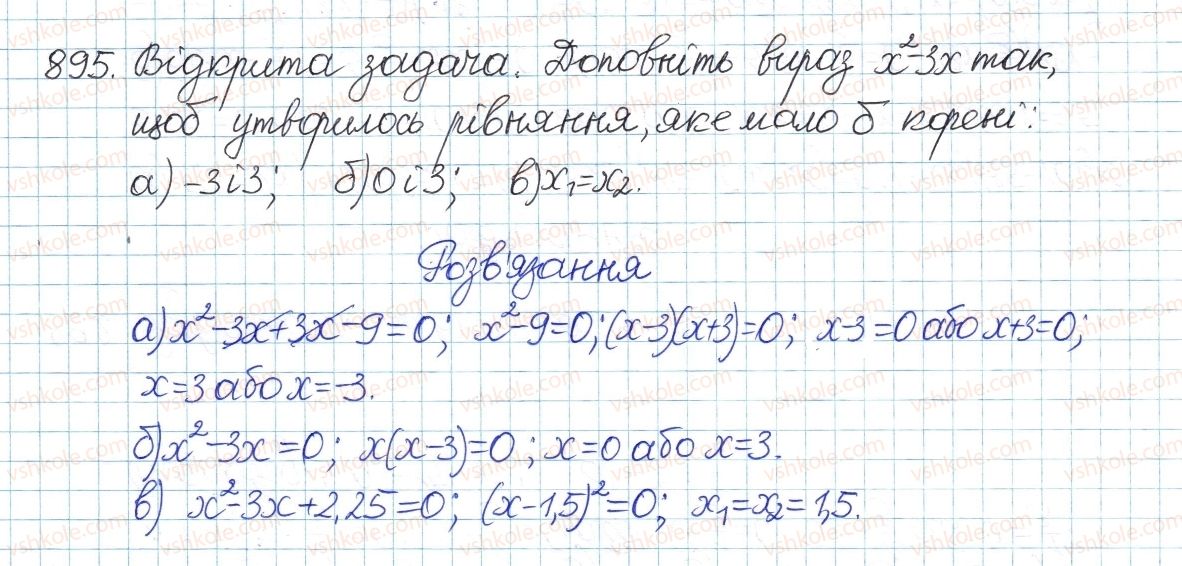 895. Відкрита задача. Доповніть вираз x²-3x так,
щоб утворилось рівняння, яке мало б корені:
а) -3 і 3; б) 0 і 3; в) x₁=x₂.
Розв'язання
а) x²-3x+3x-9=0; x²-9=0; (x-3)(x+3)=0; x-3=0 або x+3=0;
x=3 або x=-3.
б) x²-3x=0; x(x-3)=0; x=0 або x=3.
в) x²-3x+2,25=0; (x-1,5)²=0; x₁=x₂=1,5.